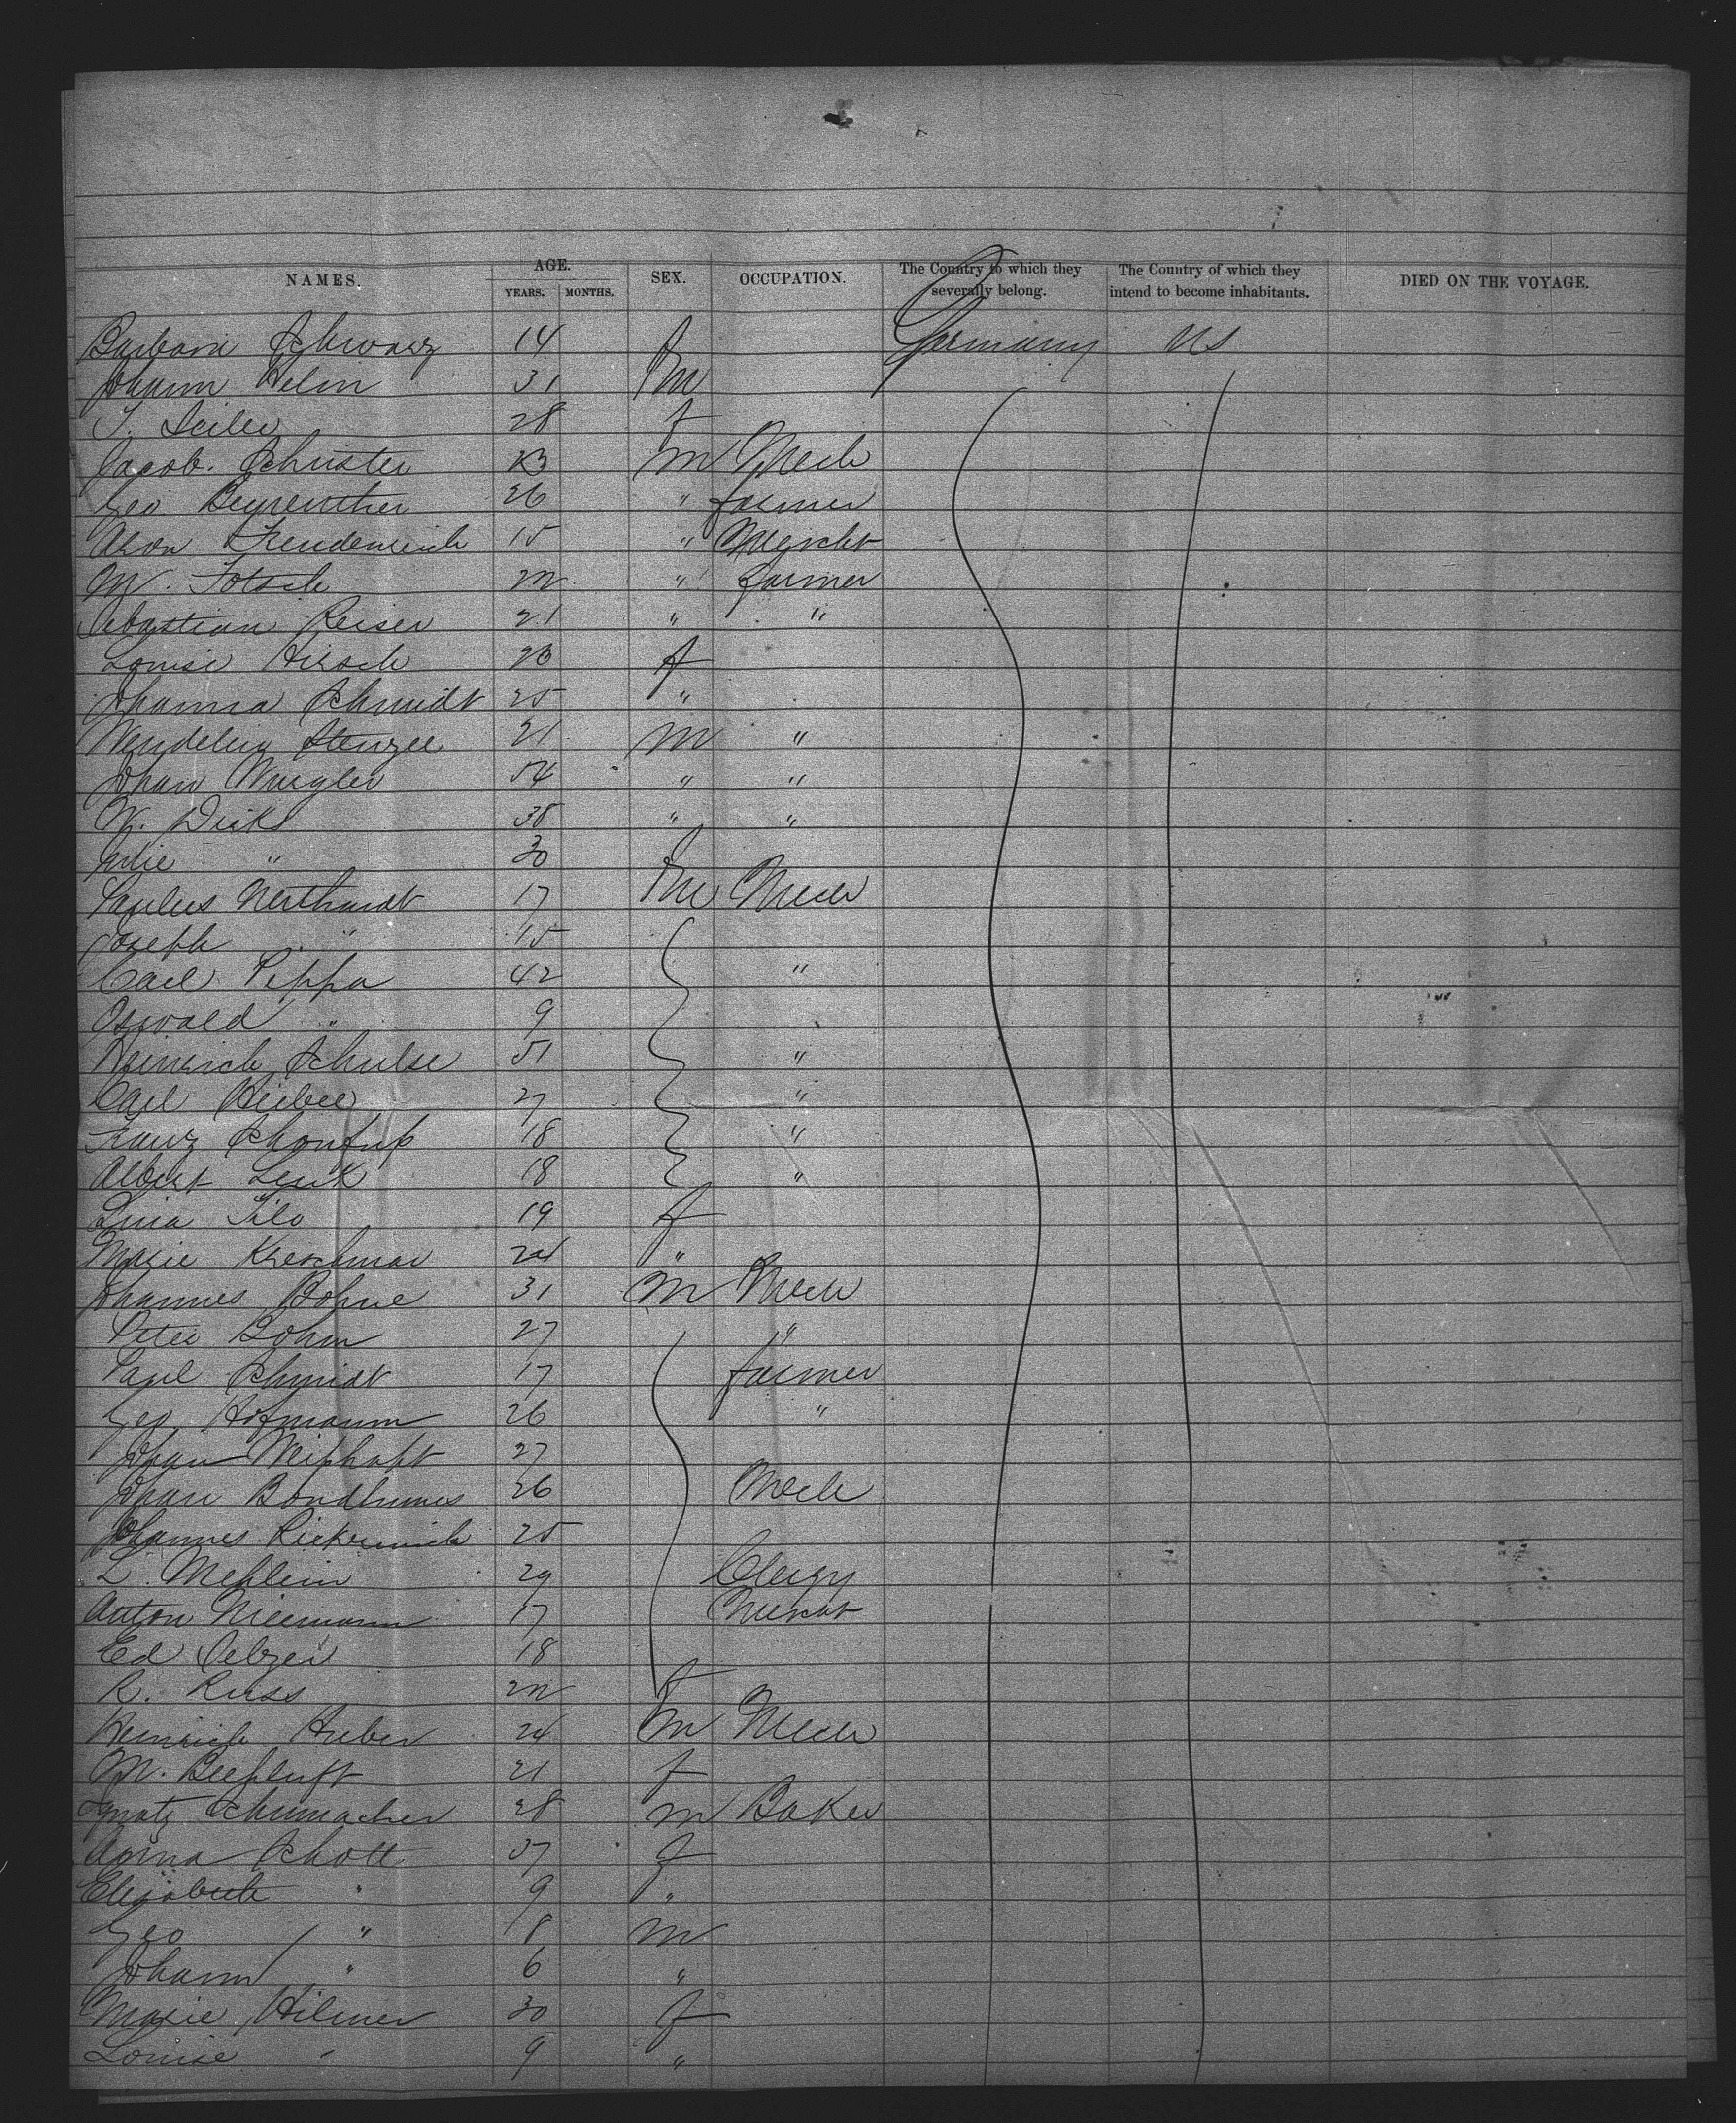 NAMES. AGE. YEARS. MONTHS. SEX. OCCUPATION. The Country to which they severally belong. The Country of which they intend to become inhabitants. DIED ON THE VOYAGE.
Barbara Schwarz 14 f Germany US
Johann Helm 31 m
T. Seiler 28 f
Jacob. Schuster 23 m Mech
Geo. Beyreuther 26 " farmer
Aron Freudenreich 15 " Mercht
M. Fotsch 22 " farmer
Sebastian Reiser 21 " "
Louise Hirsch 23 f
Johanna Schmidt 25 "
Wendelin Stenzel 21 m "
Johan Wurgler 54 " "
W. Dicks 38 " "
Julie " 30 f
Paulus Werthardt 17 m Mech
Joseph " 15
Carl Pippa 42 "
Oswald " 9
Heinrich Schulse 51 "
Carl Hiebel 27 "
Franz 18 "
Albert Lenk 18 "
Lina Tilo 19 f
Marie Kreschmar 24 "
Johannes Bohne 31 m Mech
Peter Bohm 27 "
Paul Schmidt 17 farmer
Geo Hofmann 26 "
Johan 27
Johan 26 Mech
Johannes 25
L. Mehlein 29 Clergy
Anton Niemann 17 Mercht
Ed Selzer 18
R. Russ 22 f
Heinrich Huber 24 m Mech
M. 21 f
Ignatz Schumacher 28 m Baker
Anna Schott 37 f
Elisabeth " 9 "
Geo " 8 m
Johann " 6 "
Marie Hilmer 30 f
Louise " 9 "